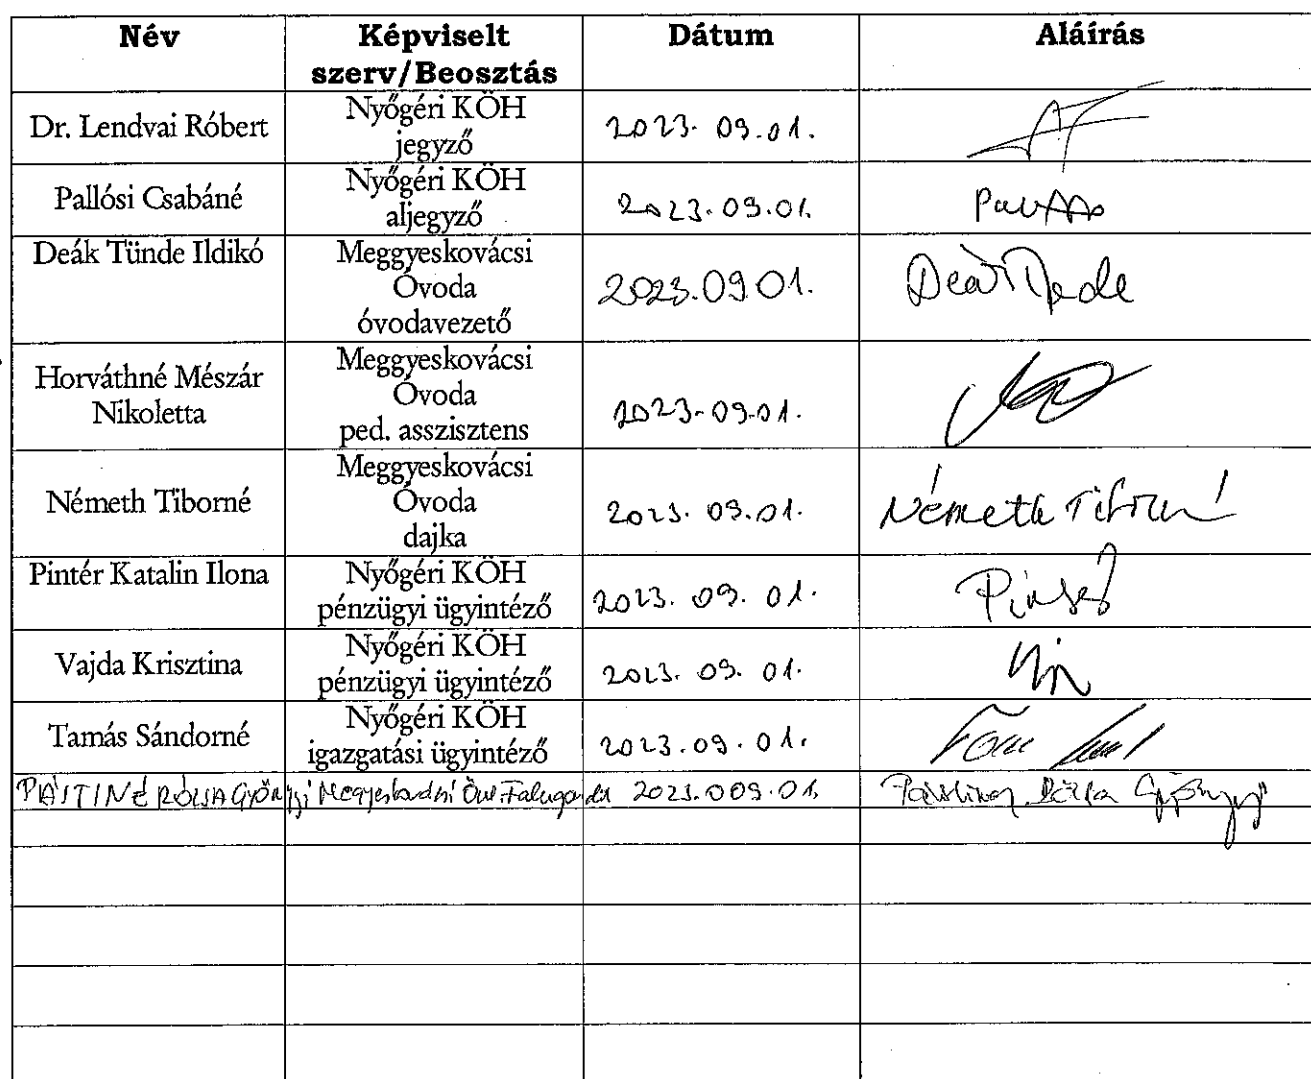 Név Képviselt szerv/Beosztás Dátum Aláírás
Dr. Lendvai Róbert Nyőgéri KÖH jegyző 2023. 09.01.
Pallósi Csabáné Nyőgéri KÖH aljegyző 2023.09.01.
Deák Tünde Ildikó Meggyeskovácsi Óvoda óvodavezető 2023.09.01.
Horváthné Mészár Nikoletta Meggyeskovácsi Óvoda ped. asszisztens 2023.09.01.
Németh Tiborné Meggyeskovácsi Óvoda dajka 2023. 09.01. Németh Tiborné
Pintér Katalin Ilona Nyőgéri KÖH pénzügyi ügyintéző 2023. 09. 01. Pintér
Vajda Krisztina Nyőgéri KÖH pénzügyi ügyintéző 2023. 09. 01.
Tamás Sándorné Nyőgéri KÖH igazgatási ügyintéző 2023.09.01.
Gyöngyi 2023.009.01. Gyöngyi